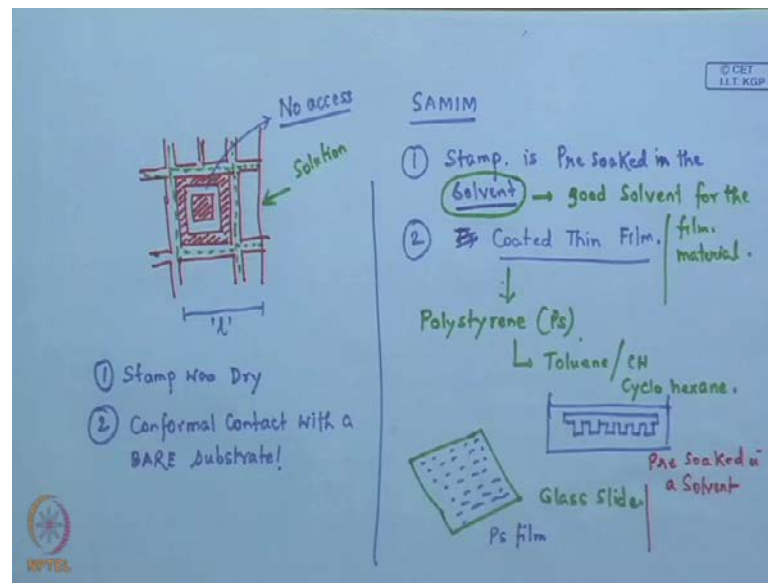 © CET
I.I.T. KGP
No access
Solution
'λ'
① Stamp was Dry
② Conformal Contact with a
BARE Substrate!
SAMIM
① Stamp. is Pre soaked in the
Solvent → good Solvent for the
film.
material.
② Coated Thin Film.
Polystyrene (Ps)
Toluene / CH
Cyclo hexane.
Pre Soaked in
a Solvent
Glass Slide
Ps film
NPTEL